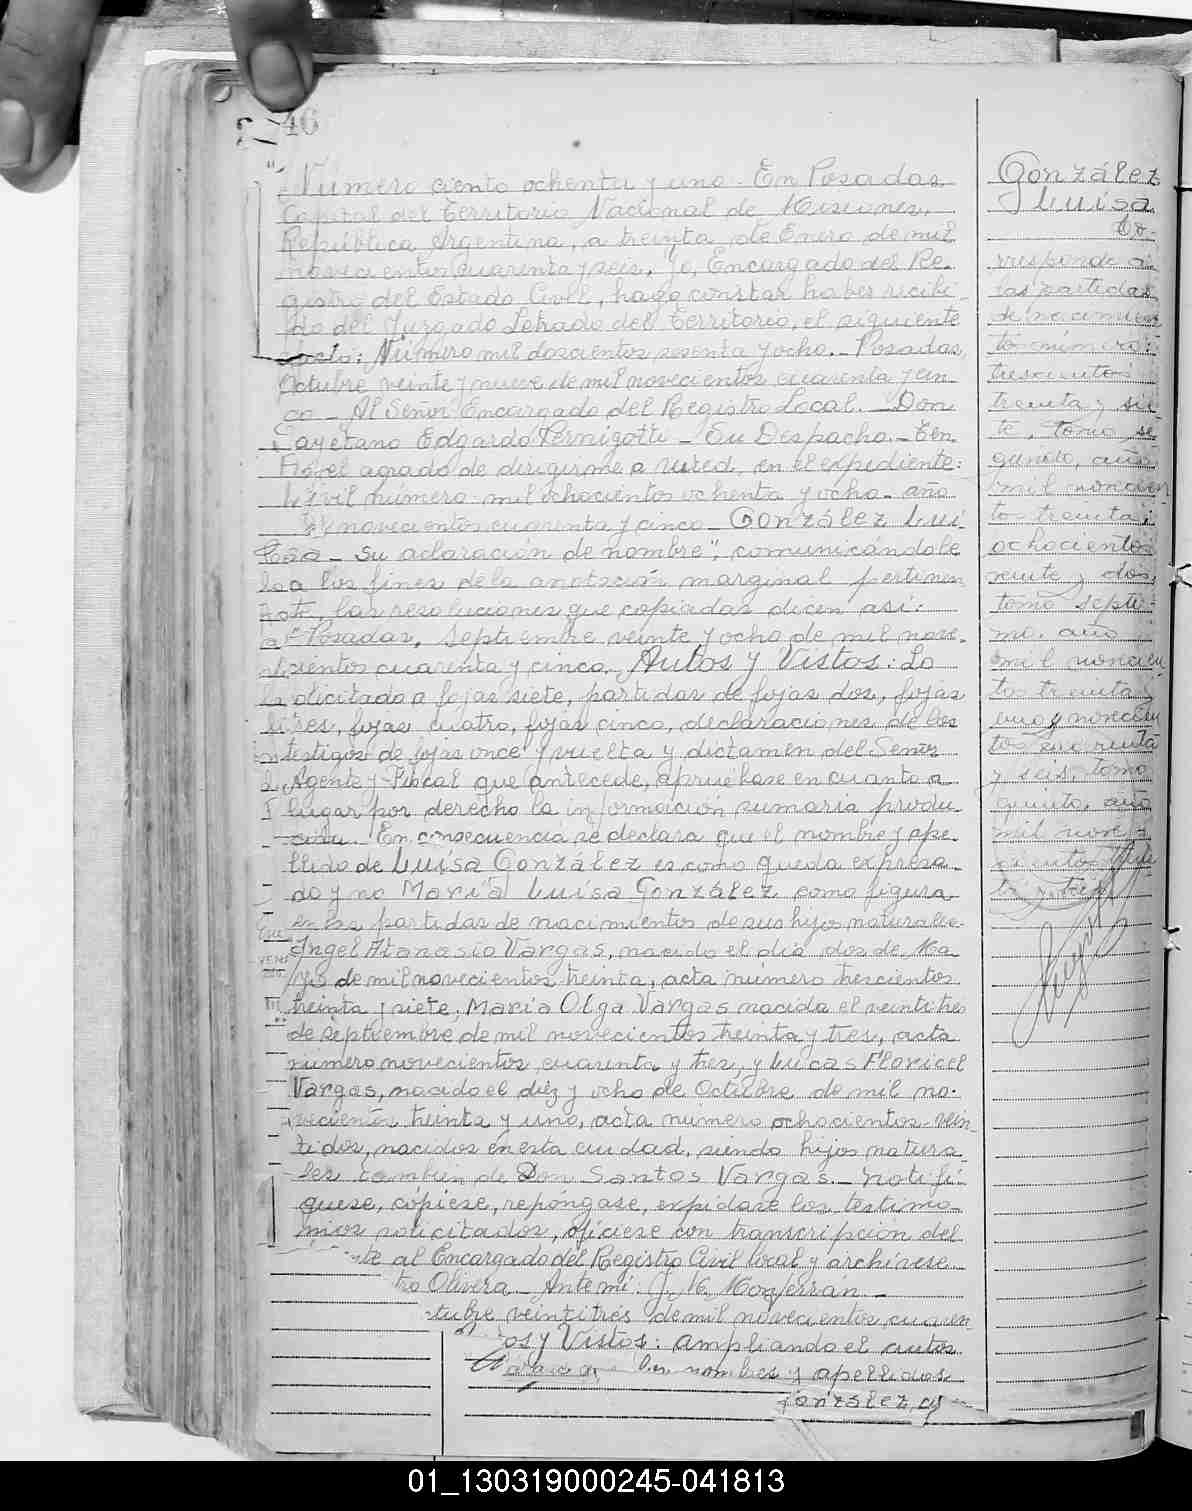 46
Número ciento ochenta y uno. En Posadas,
Capital del Territorio Nacional de Misiones,
República Argentina, a treinta de Enero de mil
novecientos cuarenta y seis, Yo, Encargado del Re-
gistro del Estado Civil, hago constar haber recibi-
do del Juzgado Letrado del Territorio, el siguiente
Número mil doscientos sesenta y ocho.- Posadas,
Octubre veinte y nueve de mil novecientos cuarenta y cin-
co - Al Señor Encargado del Registro Local. - Don
Cayetano Edgardo Pernigotti - Su Despacho. - Ten
el agrado de dirigirme a usted, en el expediente:
Civil número mil ochocientos ochenta y ocho - año
novecientos cuarenta y cinco - González Lui-
sa - su aclaración de nombre", comunicándole
a los fines de la anotación marginal pertinen
te, las resoluciones que copiadas dicen así:
Posadas, septiembre veinte y ocho de mil nove-
cientos cuarenta y cinco. Autos y Vistos: Lo
solicitado a fojas siete, partidas de fojas dos, fojas
tres, fojas cuatro, fojas cinco, declaraciones de los
testigos de fojas once y vuelta y dictamen del Señor
Agente Fiscal que antecede, apruébase en cuanto a
lugar por derecho la información sumaria produ-
cida. En consecuencia se declara que el nombre y ape-
llido de Luisa González es como queda expresa-
do y no María Luisa González como figura
en las partidas de nacimientos de sus hijos naturales
Angel Atanasio Vargas, nacido el día dos de Ma-
yo de mil novecientos treinta, acta número trescientos
treinta y siete, María Olga Vargas nacida el veintitres
de septiembre de mil novecientos treinta y tres, acta
número novecientos cuarenta y tres, y Lucas Floricel
Vargas, nacido el diez y ocho de Octubre de mil no-
vecientos treinta y uno, acta número ochocientos vein-
tidos, nacidos en esta ciudad, siendo hijos natura-
les también de Don Santos Vargas.- Notifí-
quese, cópiese, repóngase, expídase los testimo-
nios solicitados, ofíciese con transcripción del
te al Encargado del Registro Civil local y archívese
tro Olivera - Ante mí: J. M. Monferrán -
tubre veintitrés de mil novecientos cuaren-
os y Vistos: ampliando el autos
los nombres y apellidos
González
González
Luisa
Co-
rresponde a
las partidas
de nacimien
to número:
trescientos
treinta y sie-
te, tomo se
gundo, año
mil novecien
tos treinta;
ochocientos
veinte y dos,
tomo septi-
mo, año
mil novecien
tos treinta y
uno y novecien
tos cuarenta
y seis, tomo
quinto, año
mil nove
cientos trein
ta y tres
01_130319000245-041813